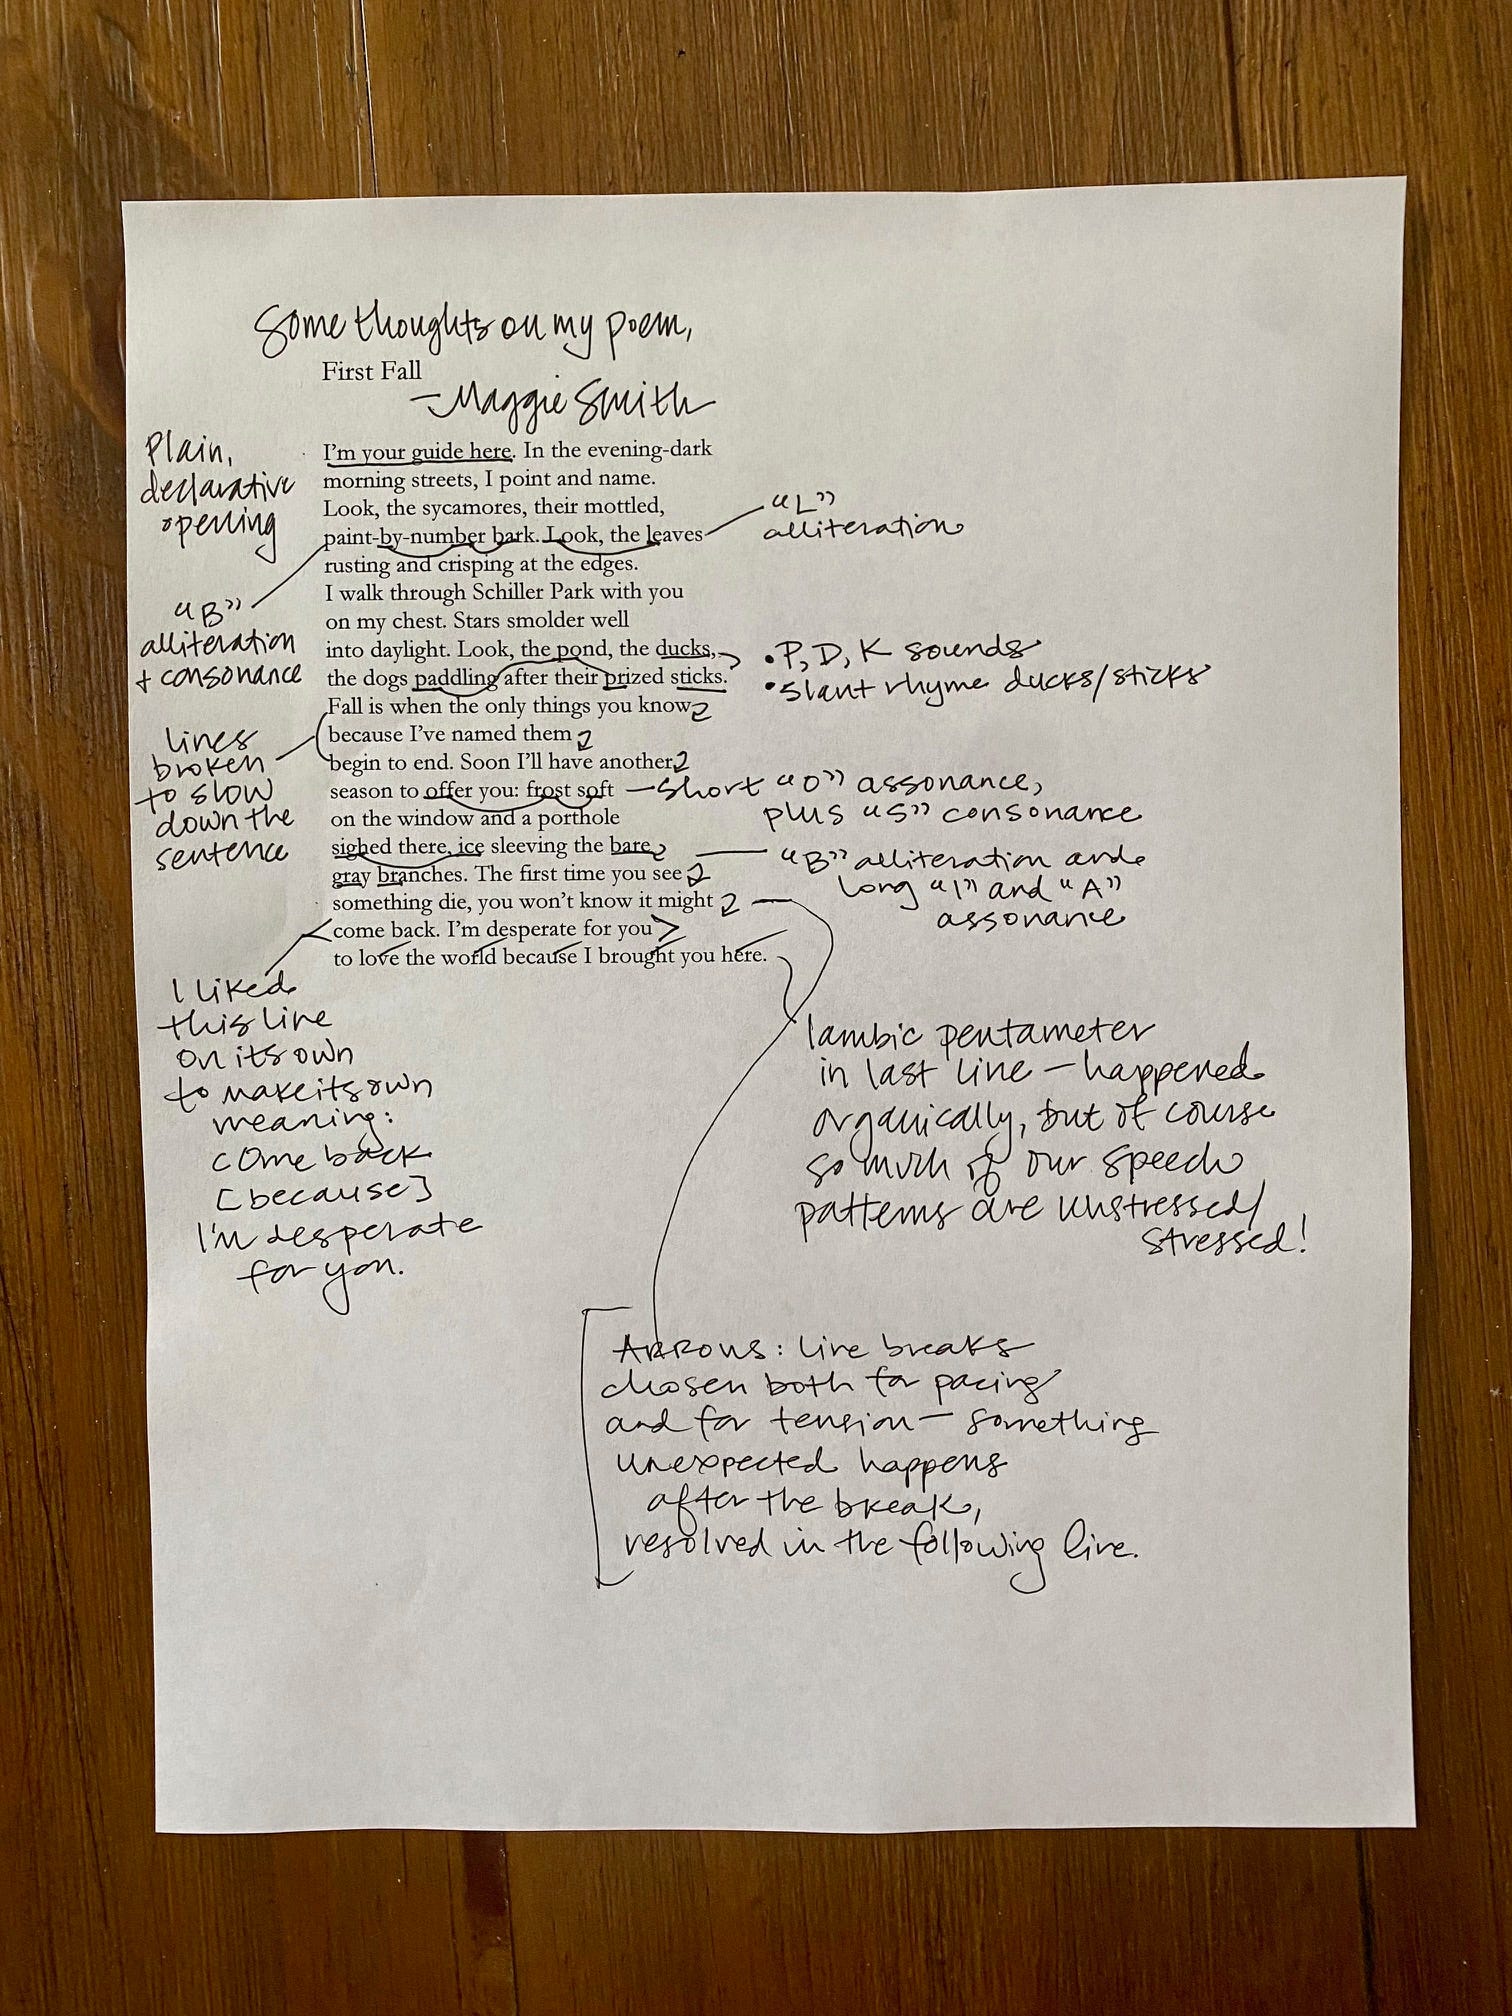 Some thoughts on my poem,
First Fall
—Maggie Smith
Plain,
declarative
opening
"B"
alliteration
+ consonance
lines
broken
to slow
down the
sentence
I'm your guide here. In the evening-dark
morning streets, I point and name.
Look, the sycamores, their mottled,
paint-by-number bark. Look, the leaves
rusting and crisping at the edges.
I walk through Schiller Park with you
on my chest. Stars smolder well
into daylight. Look, the pond, the ducks,
the dogs paddling after their prized sticks.
Fall is when the only things you know
because I've named them
begin to end. Soon I'll have another
season to offer you: frost soft
on the window and a porthole
sighed there, ice sleeving the bare
gray branches. The first time you see
something die, you won't know it might
come back. I'm desperate for you
to love the world because I brought you here.
"L"
alliteration
• P, D, K sounds
• slant rhyme ducks/sticks
short "O" assonance,
plus "S" consonance
"B" alliteration and
long "I" and "A"
assonance
I liked
this line
on its own
to make its own
meaning:
come back
[because]
I'm desperate
for you.
Iambic pentameter
in last line — happened
organically, but of course
so much of our speech
patterns are unstressed/
stressed!
ARROWS: line breaks
chosen both for pacing
and for tension — something
unexpected happens
after the break,
resolved in the following line.